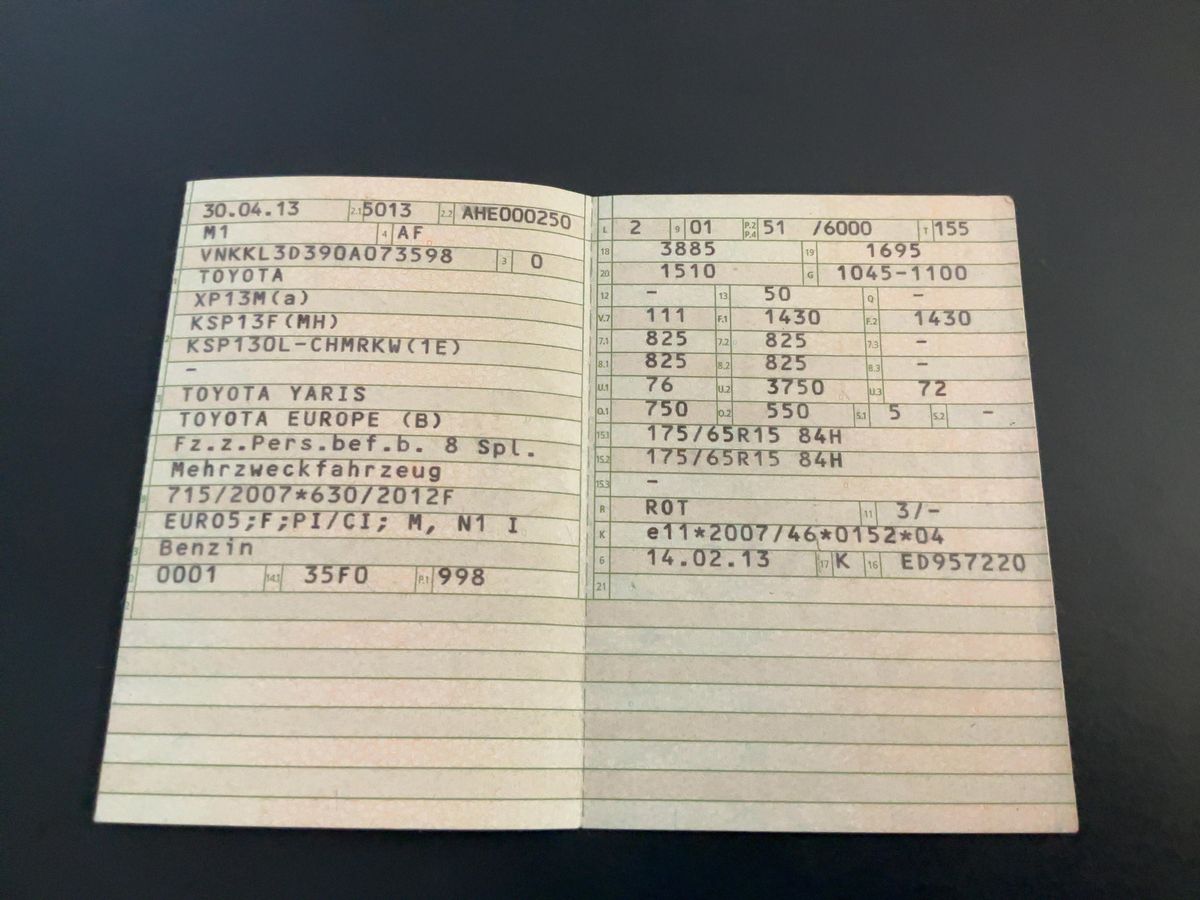 30.04.13 2.1 5013 2.2 AHE000250
M1 4 AF
VNKKL3D390A073598 3 0
TOYOTA
XP13M(a)
KSP13F(MH)
KSP130L-CHMRKW(1E)
-
TOYOTA YARIS
TOYOTA EUROPE (B)
Fz.z.Pers.bef.b. 8 Spl.
Mehrzweckfahrzeug
715/2007*630/2012F
EURO5;F;PI/CI; M, N1 I
Benzin
0001 14.1 35F0 P.1 998
L 2 9 01 P.2 P.4 51 /6000 T 155
18 3885 19 1695
20 1510 G 1045-1100
12 - 13 50 Q -
V.7 111 F.1 1430 F.2 1430
7.1 825 7.2 825 7.3 -
8.1 825 8.2 825 8.3 -
U.1 76 U.2 3750 U.3 72
O.1 750 O.2 550 S.1 5 S.2 -
15.1 175/65R15 84H
15.2 175/65R15 84H
15.3 -
R ROT 11 3/-
K e11*2007/46*0152*04
6 14.02.13 17 K 16 ED957220
21